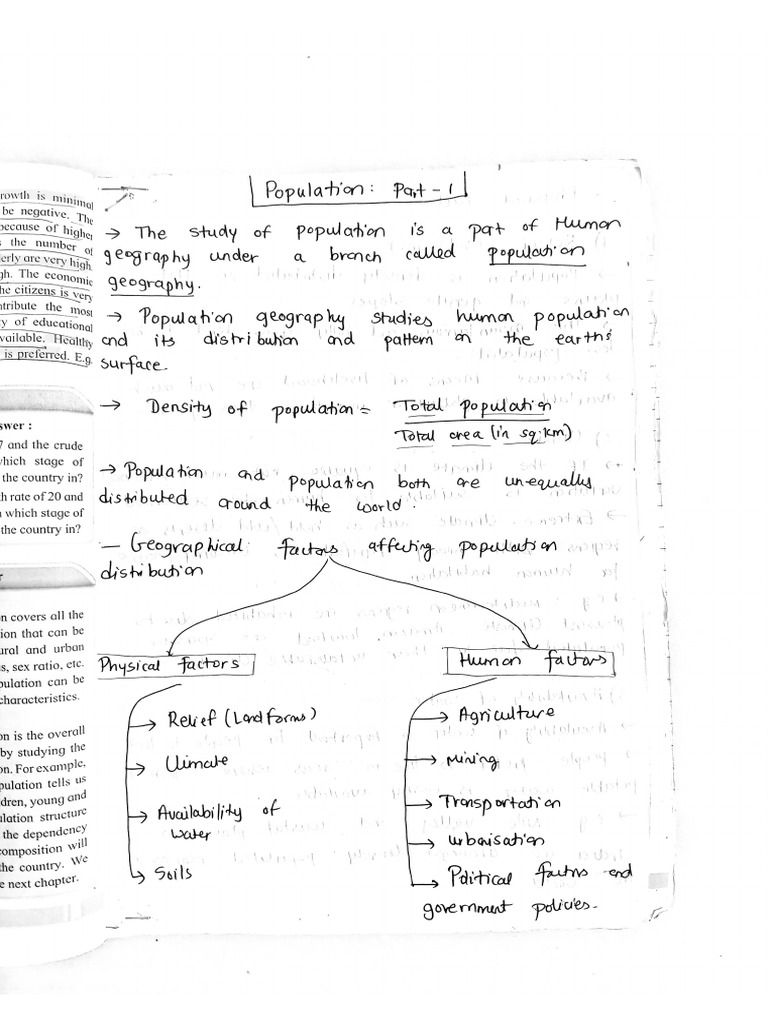 rowth is minimal
be negative. The
because of higher
s the number of
erly are very high
gh. The economic
he citizens is very
ntribute the most
y of educational
vailable. Healthy
is preferred. E.g.
swer :
7 and the crude
which stage of
the country in?
h rate of 20 and
n which stage of
the country in?
r
n covers all the
ion that can be
ural and urban
s, sex ratio, etc.
pulation can be
characteristics.
on is the overall
by studying the
on. For example,
pulation tells us
dren, young and
ulation structure
the dependency
composition will
the country. We
e next chapter.
Population: Part - 1
→ The study of population is a part of Human
geography under a branch called population
geography.
→ Population geography studies human population
and its distribution and pattern on the earth's
surface.
→ Density of population = Total population
Total area (in sq.km)
→ Population and population both are unequally
distributed around the world.
— Geographical factors affecting population
distribution
Physical factors
→ Relief (Landforms)
→ Climate
→ Availability of
water
→ Soils
Human factors
→ Agriculture
→ Mining
→ Transportation
→ urbanisation
→ Political factors and
government policies.